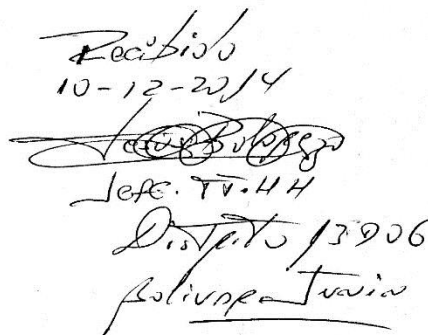 Recibido
10-12-2014
Jefe. TT.HH
Distrito 13D06
Bolivar Junin